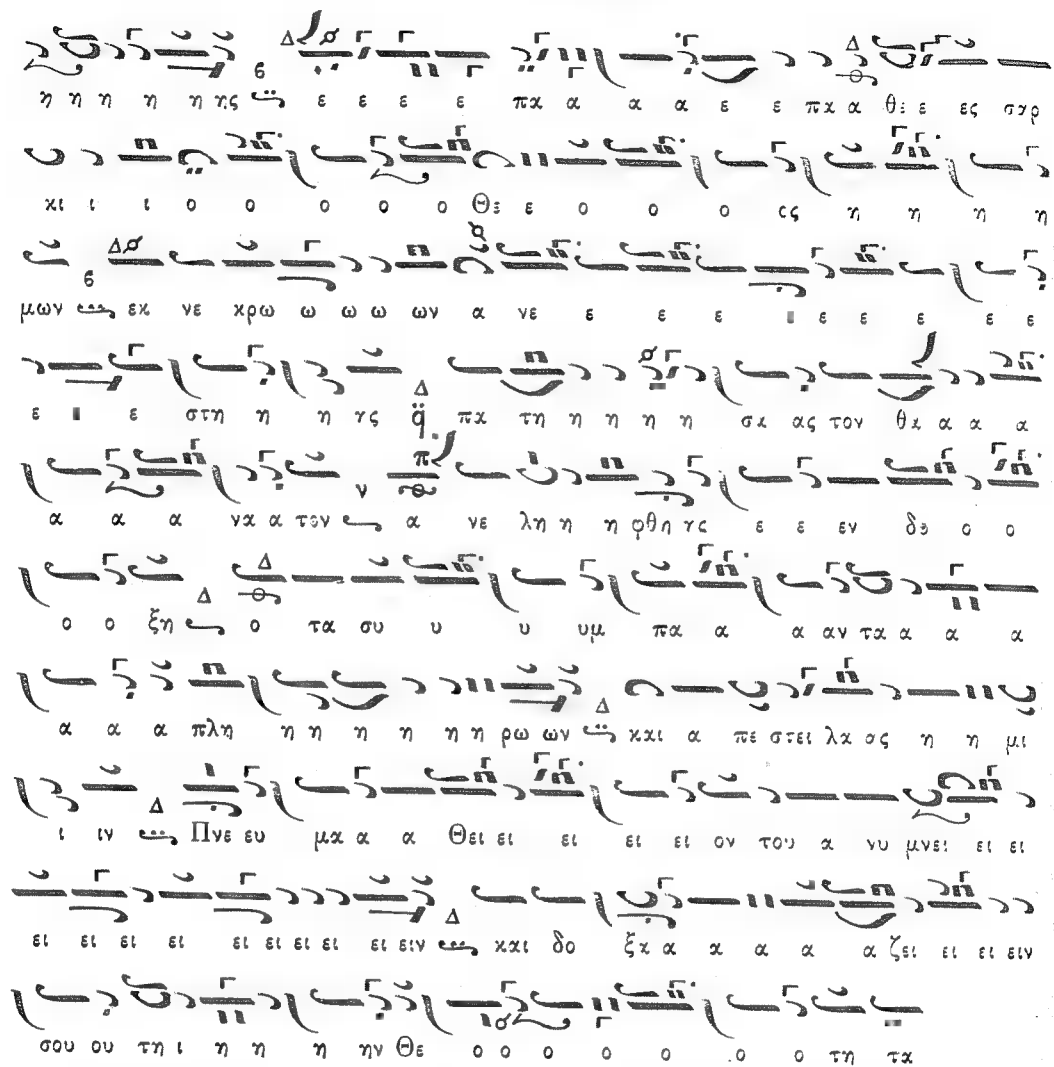 η η η η η ης ε ε ε ε πα α α α ε ε πα α θε ε ες σαρ
κι ι ι ο ο ο ο ο Θε ε ο ο ο ος η η η η
μων εκ νε κρω ω ω ω ων α νε ε ε ε ε ε ε ε ε
ε ε στη η η ης πα τη η η η η σα ας τον θα α α α
α α α να α τον α νε λη η η φθη ης ε ε εν δο ο ο
ο ο ξη ο τα συ υ υ υμ πα α α αν τα α α α
α α α πλη η η η η η η ρω ων και α πε στει λα ας η η μι
ι ιν Πνε ευ μα α α Θει ει ει ει ει ον του α νυ μνει ει ει
ει ει ει ει ει ει ει ει ει ειν και δο ξα α α α α α ζει ει ει ειν
σου ου τη ι η η η ην Θε ο ο ο ο ο ο ο τη τα